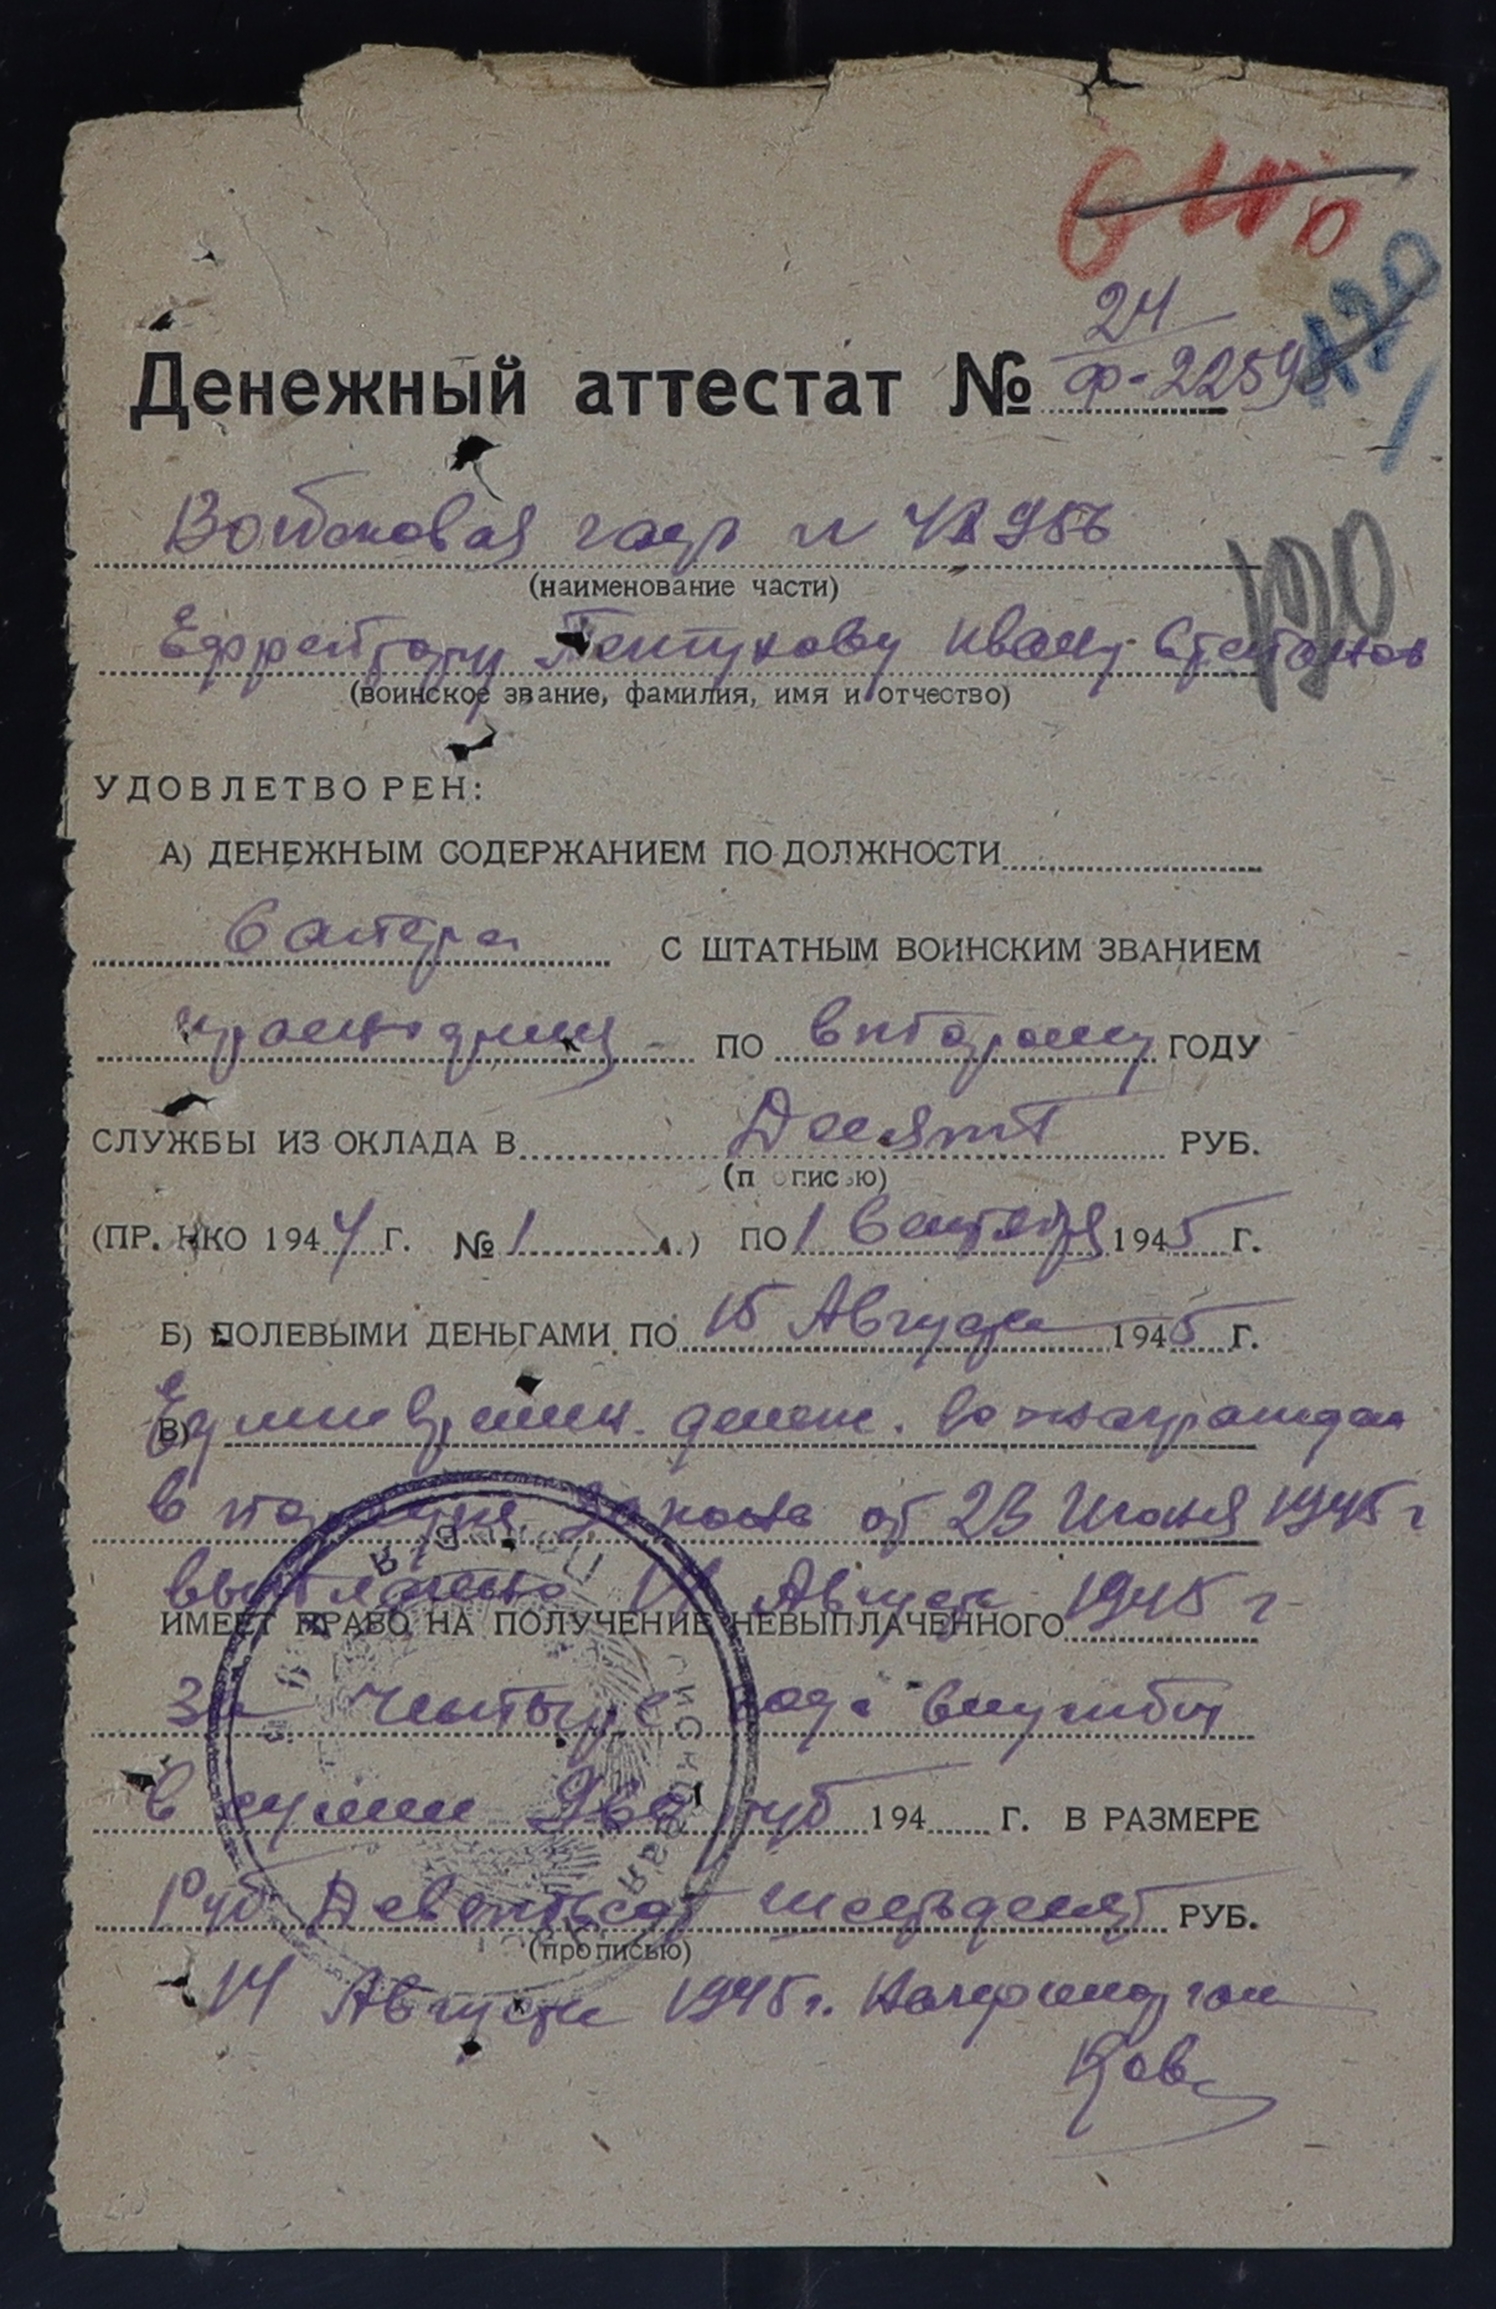 120
24
Денежный аттестат № Ф-22598
Войсковая часть №
(наименование части)
120
Ефрейтору Пептухову Ивану Степанов
(воинское звание, фамилия, имя и отчество)
УДОВЛЕТВОРЕН:
А) ДЕНЕЖНЫМ СОДЕРЖАНИЕМ ПО ДОЛЖНОСТИ
Сапера С ШТАТНЫМ ВОИНСКИМ ЗВАНИЕМ
ПО второму ГОДУ
СЛУЖБЫ ИЗ ОКЛАДА В Десять РУБ.
(п описью)
(ПР. НКО 1944 Г. № 1 ) ПО 1 Сентября 1945 Г.
Б) ПОЛЕВЫМИ ДЕНЬГАМИ ПО 15 Августа 1945 Г.
В) Единовремен. денеж. вознагражден
в Закона от 23 Июня 1945 г
выплачено 14 Август 1945 г
ИМЕЕТ ПРАВО НА ПОЛУЧЕНИЕ НЕВЫПЛАЧЕННОГО
За четыре года службы
в сумми 960 руб 194 Г. В РАЗМЕРЕ
Руб Девятьсот шестьдесят РУБ.
(прописью)
14 Августа 1945 г.